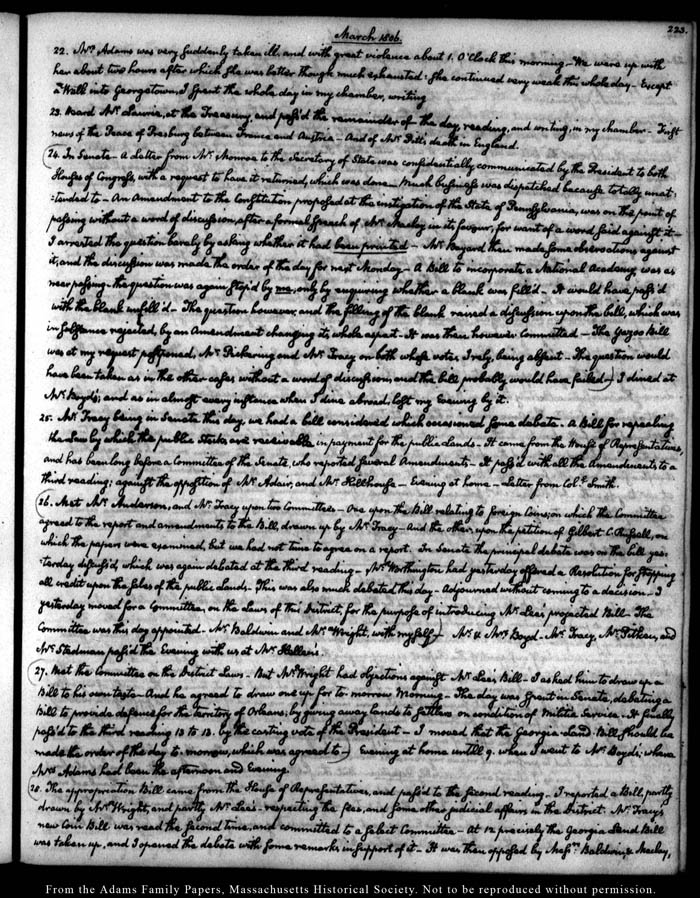 223.
March 1806.
22. Mrs. Adams was very suddenly taken ill. and with great violence about 1. O'Clock this morning— We were up with
her about two hours after which She was better though much exhausted: She continued very weak this whole day— Except
a Walk into Georgetown, I spent the whole day in my chamber, writing
23. Heard Mr. Laurie, at the Treasury, and pass'd the remainder of the day, reading, and writing, in my chamber— First
news of the Peace of Presburg between France and Austria— And of Mr. Pitt's death in England.
24. In Senate— A Letter from Mr. Monroe to the Secretary of State was confidentially communicated by the President to both
Houses of Congress, with a request to have it returned, which was done. Much business was dispatched because totally unat-
:tended to— An Amendment to the Constitution proposed at the instigation of the State of Pennsylvania, was on the point of
passing without a word of discussion, after a formal speech of Mr. Maclay in its favour, for want of a word said against it—
I arrested the question barely by asking whether it had been printed— Mr. Bayard then made some observations against
it, and the discussion was made the order of the day for next Monday— A Bill to incorporate a National Academy, was as
near passing. the question was again stop'd by me, only by enquiring whether a blank was fill'd— It would have pass'd
with the blank unfill'd— The question however, and the filling of the blank raised a discussion upon the bill, which was
in substance rejected, by an Amendment changing its whole aspect— It was then however committed— The Yazoo Bill
was at my request postponed, Mr. Pickering and Mr. Tracy on both whose votes I rely, being absent— The question would
have been taken as in the other cases without a word of discussion, and the bill probably would have failed—) I dined at
Mr. Boyd's; and as in almost every instance when I dine abroad, lost my Evening by it.
25. Mr. Tracy being in Senate this day, we had a bill considered which occasioned some debate. A Bill for repealing
the Law by which the public Stocks are receivable in payment for the public Lands— It came from the House of Representatives,
and has been long before a Committee of the Senate, who reported several Amendments— It pass'd with all the Amendments to a
third reading; against the opposition of Mr. Adair, and Mr. Hillhouse— Evening at home— Letter from Col. Smith.
26. Met Mr. Anderson, and Mr. Tracy upon two Committees— One upon the Bill relating to foreign Coins; on which the Committee
agreed to the report and amendments to the Bill, drawn up by Mr. Tracy— And the other upon the petition of Gilbert C. Russell, on
which the papers were examined, but we had not time to agree on a report. In Senate the principal debate was on the bill yes-
:terday discuss'd, which was again debated at the third reading— Mr. Worthington had yesterday offered a Resolution for stopping
all credit upon the sales of the public Lands— This was also much debated this day— Adjourned without coming to a decision— I
yesterday moved for a Committee, on the Laws of this District, for the purpose of introducing Mr. Lee's projected Bill— The
Committee was this day appointed— Mr. Baldwin and Mr. Wright, with myself—) Mr. & Mrs. Boyd— Mr. Tracy, Mr. Pitkin, and
Mr. Stedman pass'd the Evening with us at Mr. Hellen's.
27. Met the Committee on the District Laws— But Mr. Wright had objections against Mr. Lee's Bill— I asked him to draw up a
Bill to his own taste— And he agreed to draw one up for to-morrow Morning— The day was spent in Senate, debating a
Bill to provide defense for the territory of Orleans, by giving away lands to settlers on condition of Militia Service— It finally
pass'd to the third reading 13 to 13. by the casting vote of the President— I moved that the Georgia Land Bill should be
made the order of the day to morrow, which was agreed to—) Evening at home untill 9. when I went to Mr. Boyd's; where
Mrs. Adams had been the afternoon and Evening.
28. The appropriation Bill came from the House of Representatives, and pass'd to the second reading— I reported a Bill, partly
drawn by Mr. Wright, and partly Mr. Lee's— respecting the fees, and some other judicial affairs in the District. Mr. Tracy's
new Coin Bill was read the second time, and committed to a select Committee— At 12 precisely the Georgia Land Bill
was taken up, and I opened the debate with some remarks in support of it— It was then opposed by Messrs. Baldwin, & Maclay,
From the Adams Family Papers, Massachusetts Historical Society. Not to be reproduced without permission.